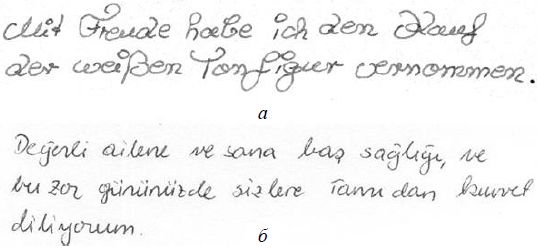 Mit Freude habe ich den Kauf
der weißen Tonfigur vernommen.
а
Değerli ailene ve sana baş sağlığı, ve
bu zor gününüzde sizlere Tanrıdan kuvvet
diliyorum.
б